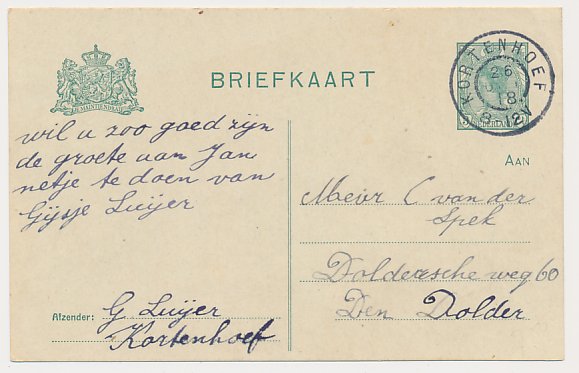 BRIEFKAART
JE MAINTIENDRAI
KORTENHOEF
26
18
8-12V
NEDERLAND
AAN
wil u zoo goed zijn
de groete aan Jan
netje te doen van
Gijsje Luijer
Meier C van der
Spek
Doldersche weg 60
Den Dolder
Afzender: G Luijer
Kortenhoef